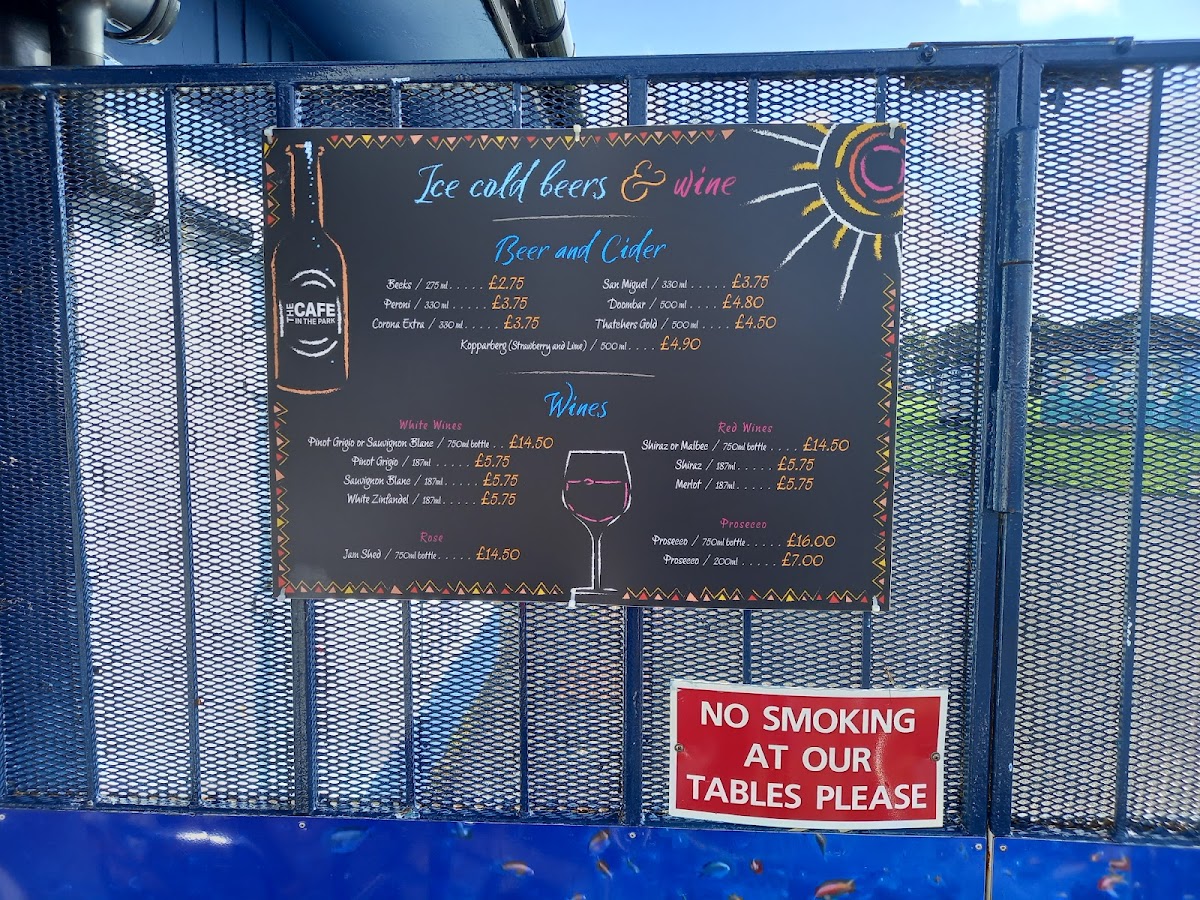 Ice cold beers & wine
Beer and Cider
Becks / 275 ml . . . . . £2.75
Peroni / 330 ml . . . . . £3.75
Corona Extra / 330 ml . . . . . £3.75
San Miguel / 330 ml . . . . . £3.75
Doombar / 500 ml . . . . £4.80
Thatchers Gold / 500 ml . . . . £4.50
Kopparberg (Strawberry and Lime) / 500 ml . . . . £4.90
THE CAFE
IN THE PARK
Wines
White Wines
Pinot Grigio or Sauvignon Blanc / 750ml bottle . . £14.50
Pinot Grigio / 187ml . . . . . £5.75
Sauvignon Blanc / 187ml . . . . . £5.75
White Zinfandel / 187ml . . . . . £5.75
Rose
Jam Shed / 750ml bottle . . . . . £14.50
Red Wines
Shiraz or Malbec / 750ml bottle . . . . £14.50
Shiraz / 187ml . . . . . £5.75
Merlot / 187ml . . . . . £5.75
Prosecco
Prosecco / 750ml bottle . . . . . £16.00
Prosecco / 200ml . . . . . £7.00
NO SMOKING
AT OUR
TABLES PLEASE